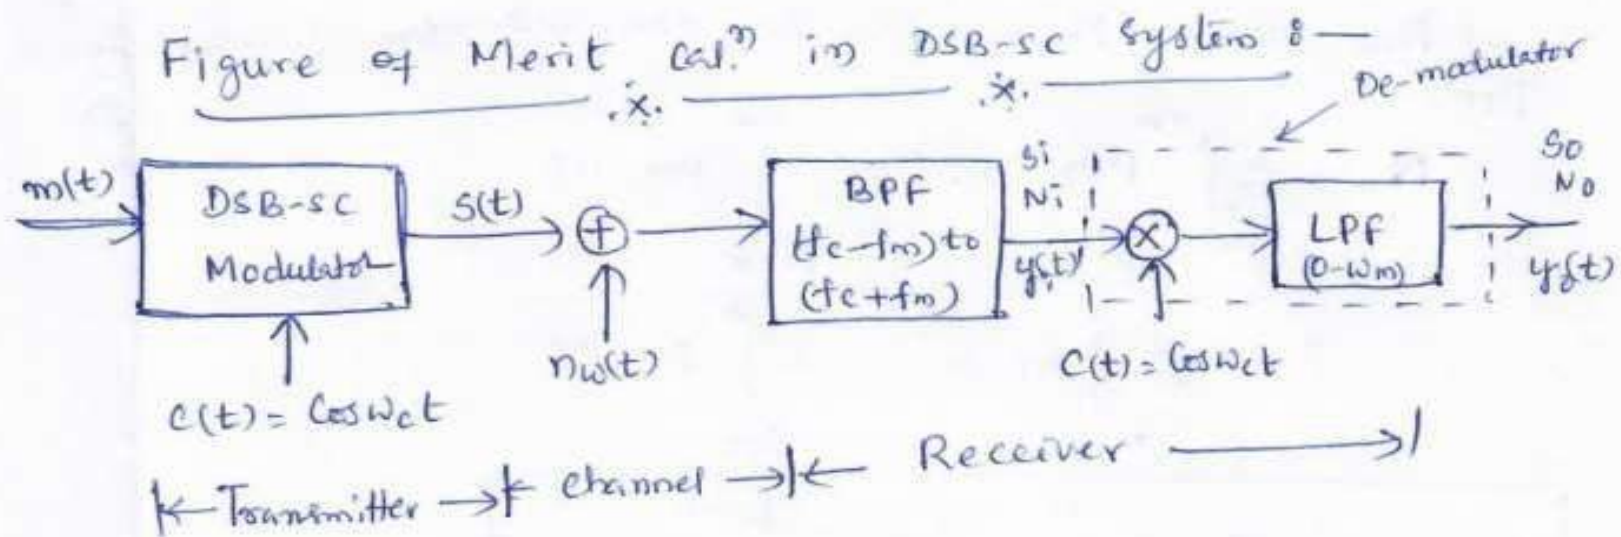 Figure of Merit Cal.ⁿ in DSB-SC System :—
De-modulator
m(t)
DSB-SC
Modulator
S(t)
BPF
(fc-fm) to
(fc+fm)
Si
Ni
LPF
(0-ωm)
So
No
nω(t)
C(t) = Cosωct
C(t) = Cosωct
Transmitter
channel
Receiver